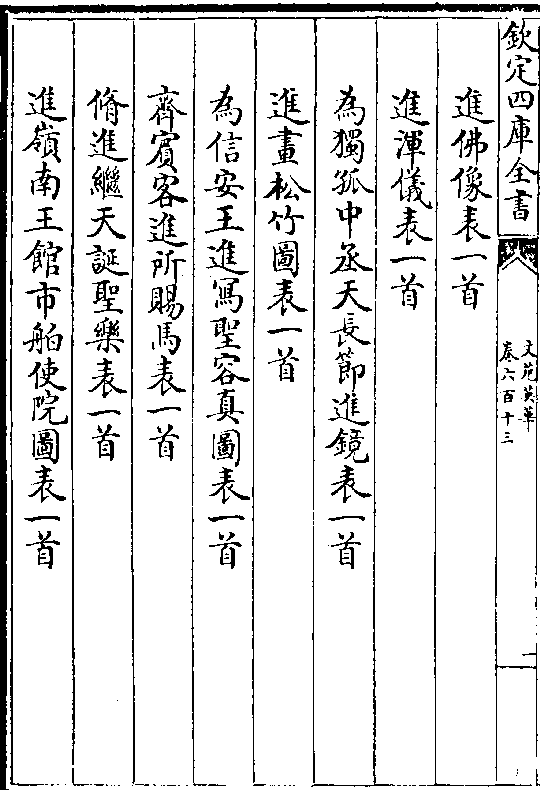 欽定四庫全書
文苑英華
卷六百十三
進佛像表一首
進渾儀表一首
為獨孤中丞天長節進鏡表一首
進畫松竹圖表一首
為信安王進寫聖容真圖表一首
齊賓客進所賜馬表一首
脩進繼天誕聖樂表一首
進嶺南王館市舶使院圖表一首